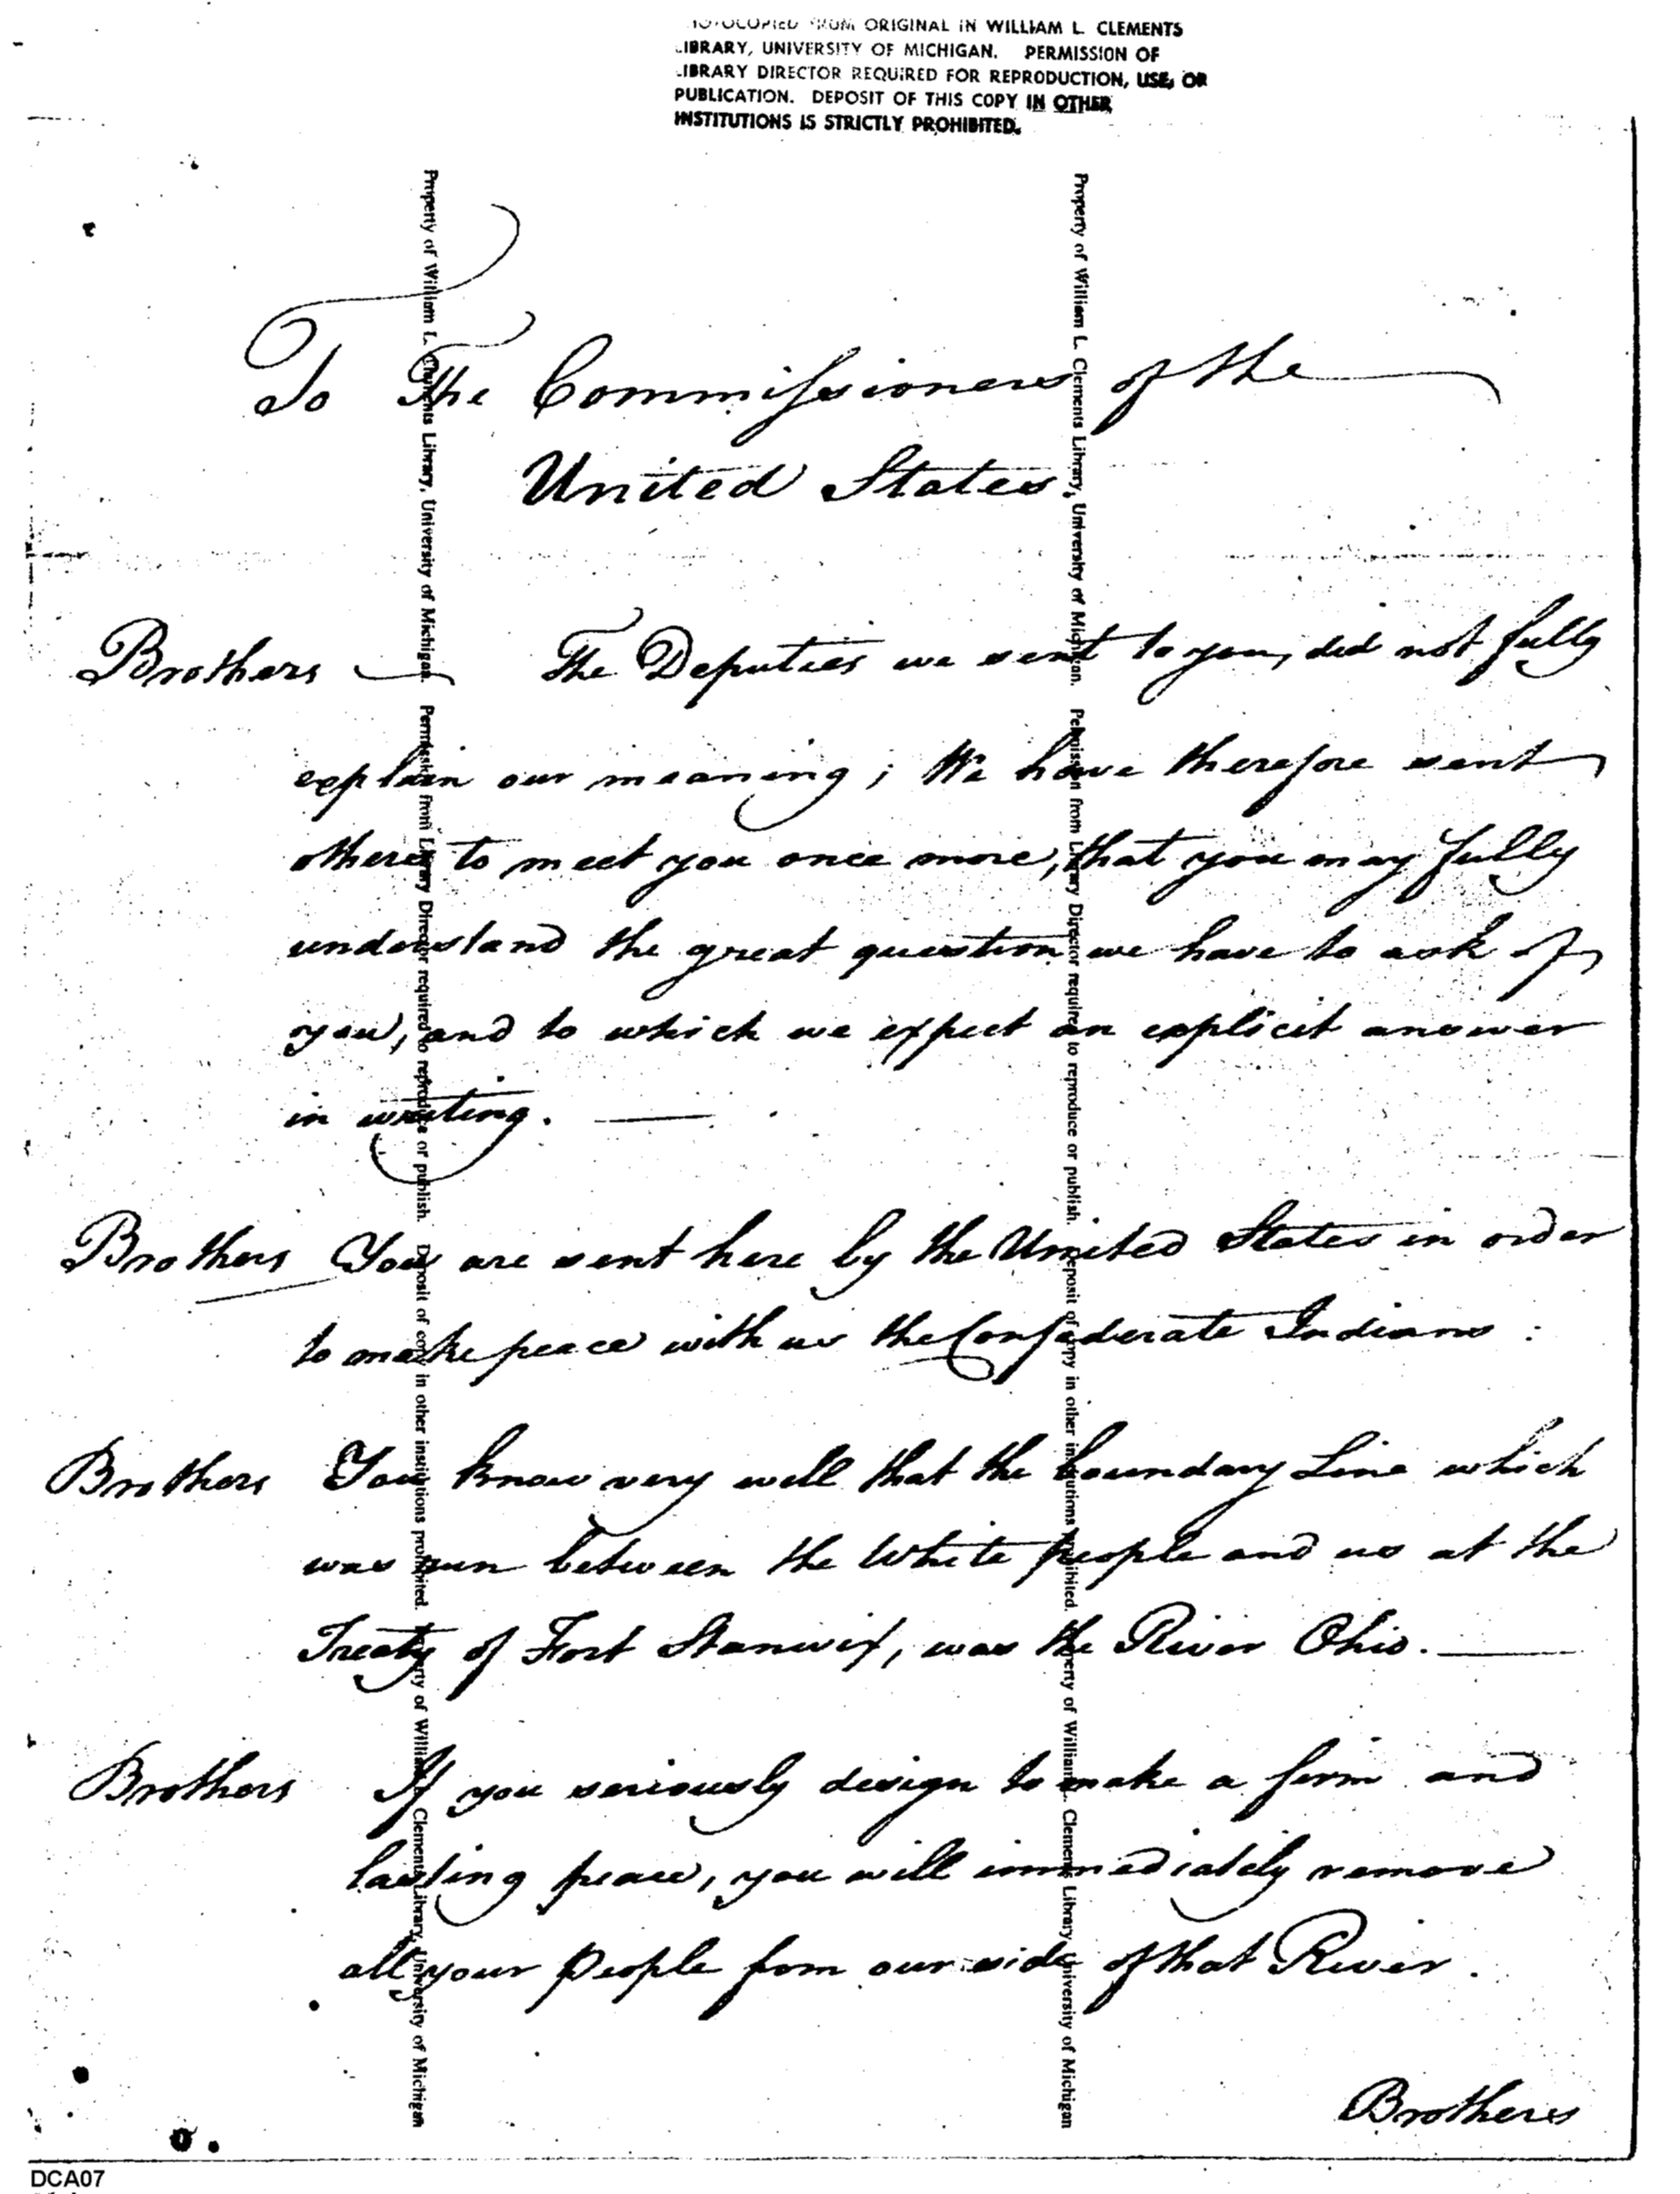 PHOTOCOPIED FROM ORIGINAL IN WILLIAM L. CLEMENTS
LIBRARY, UNIVERSITY OF MICHIGAN. PERMISSION OF
LIBRARY DIRECTOR REQUIRED FOR REPRODUCTION, USE, OR
PUBLICATION. DEPOSIT OF THIS COPY IN OTHER
INSTITUTIONS IS STRICTLY PROHIBITED.
To The Commissioners of the
United States.
Brothers — The Deputies we sent to you, did not fully
explain our meaning; We have therefore sent
others to meet you once more, that you may fully
understand the great question we have to ask of
you, and to which we expect an explicit answer
in writing. —
Brothers You are sent here by the United States in order
to make peace with us the Confederate Indians :
Brothers You know very well that the boundary Line which
was run between the White people and us at the
Treaty of Fort Stanwix, was the River Ohio. —
Brothers If you seriously design to make a firm and
lasting peace, you will immediately remove
all your People from our side of that River.
Brothers
Property of William L. Clements Library, University of Michigan. Permission from Library Director required to reproduce or publish. Deposit of copy in other institutions prohibited. Property of William L. Clements Library, University of Michigan
Property of William L. Clements Library, University of Michigan. Permission from Library Director required to reproduce or publish. Deposit of copy in other institutions prohibited. Property of William L. Clements Library, University of Michigan
DCA07